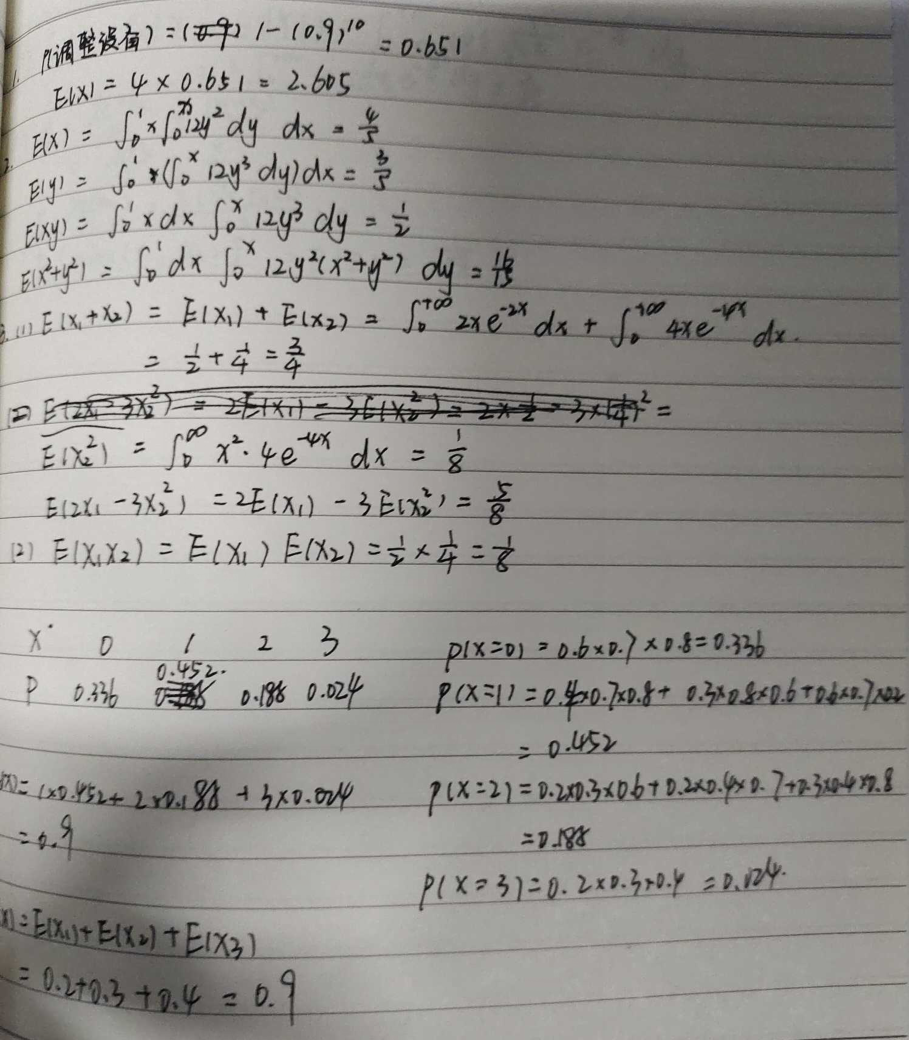 1. P(调整设备) = 1-(0.9)^10 = 0.651
E(X) = 4 × 0.651 = 2.605
2. E(X) = ∫₀¹ x ∫₀ˣ 12y² dy dx = 4/5
E(y) = ∫₀¹ (∫₀ˣ 12y³ dy) dx = 3/5
E(xy) = ∫₀¹ x dx ∫₀ˣ 12y³ dy = 1/2
E(x²+y²) = ∫₀¹ dx ∫₀ˣ 12y²(x²+y²) dy = 16/15
3. (1) E(X₁+X₂) = E(X₁) + E(X₂) = ∫₀^{+∞} 2xe^{-2x} dx + ∫₀^{+∞} 4xe^{-4x} dx.
= 1/2 + 1/4 = 3/4
(2) E(2X₁-3X₂²) = 2E(X₁) - 3E(X₂²) = 2×1/2 - 3×(1/4)² =
E(X₂²) = ∫₀^∞ x²·4e^{-4x} dx = 1/8
E(2X₁-3X₂²) = 2E(X₁) - 3E(X₂²) = 5/8
(2) E(X₁X₂) = E(X₁) E(X₂) = 1/2 × 1/4 = 1/8
X 0 1 2 3
P 0.336 0.452. 0.188 0.024
P(X=0) = 0.6×0.7×0.8=0.336
P(X=1) = 0.4×0.7×0.8+ 0.3×0.8×0.6+0.6×0.7×0.2
= 0.452
P(X=2) = 0.2×0.3×0.6+0.2×0.4×0.7+0.3×0.4×0.8
=0.188
P(X=3)=0.2×0.3×0.4 =0.024.
(X)= 1×0.452+ 2×0.188 + 3×0.024
=0.9
X)=E(X₁)+E(X₂)+E(X₃)
= 0.2+0.3+0.4 = 0.9